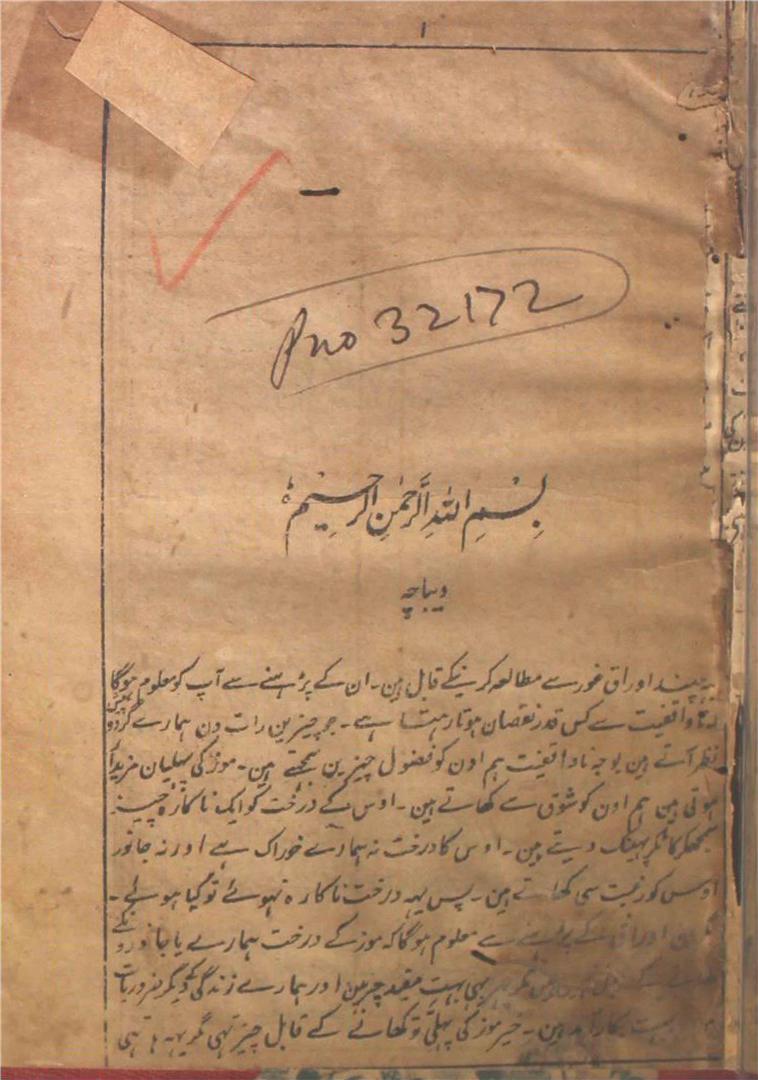 ۱
Pno 32172
بِسْمِ اللهِ الرَّحْمٰنِ الرَّحِيْمِ
دیباچہ
یہ چند اوراق غور سے مطالعہ کرنیکے قابل ہین۔ ان کے پڑہنے سے آپ کو معلوم ہوگا
واقفیت سے کس قدر نقصان ہوتا رہتا ہے۔ جو چیزین رات دن ہمارے گردو پیش
نظر آتے ہین بوجہ ناواقفیت ہم اون کو فضول چیزین سمجہتے ہین۔ موز کی پہلیان مزیدار
ہوتی ہین ہم اون کو شوق سے کھاتے ہین۔ اوس کے درخت کو ایک ناکارہ چیز
سمجھکر کاٹکر پہینک دیتے ہین۔ اوس کا درخت نہ ہمارے خوراک ہے اور نہ جانور
اوس کو رغبت سی کھاتے ہین۔ پس یہہ درخت ناکارہ نہوئے تو کیا ہوئے۔
اوراق کے پڑہنے سے معلوم ہوگا کہ موز کے درخت ہمارے یا جانورونکے
بہی بہت مفید چیز ہین اور ہمارے زندگی کے دیگر ضروریات
بہت بکارآمد ہین۔ خیر موز کی پہلی تو کھانے کے قابل چیز تہی مگر یہہ